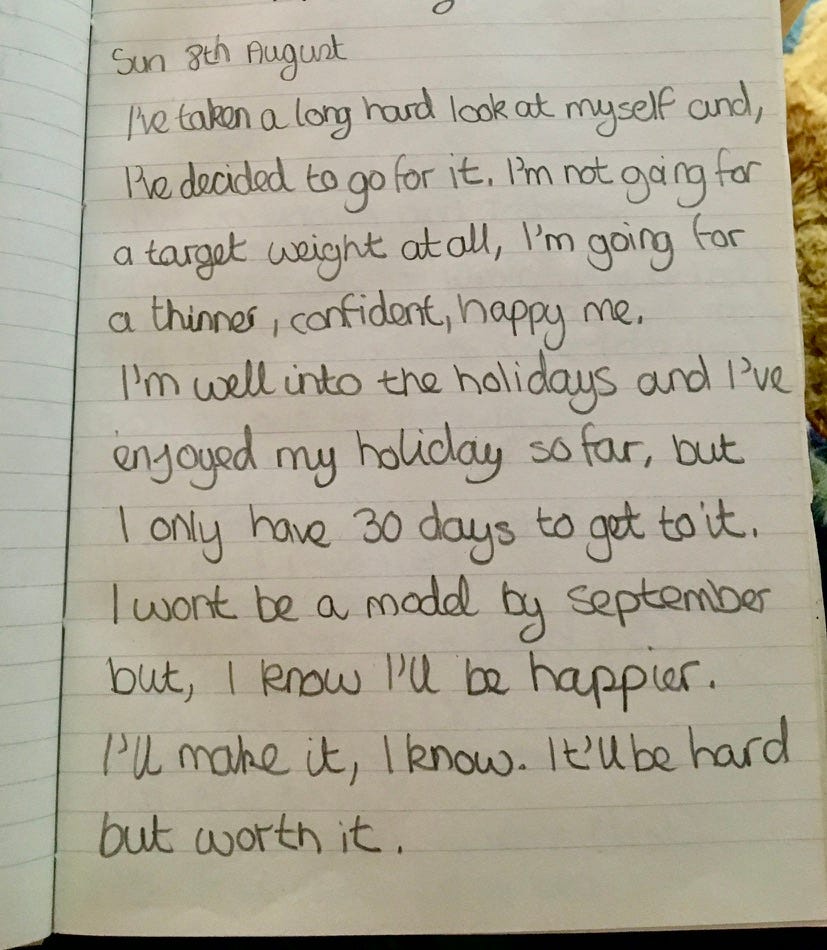 Sun 8th August
I've taken a long hard look at myself and,
I've decided to go for it. I'm not going for
a target weight at all, I'm going for
a thinner, confident, happy me.
I'm well into the holidays and I've
enjoyed my holiday so far, but
I only have 30 days to get to it.
I wont be a model by september
but, I know I'll be happier.
I'll make it, I know. It'll be hard
but worth it.